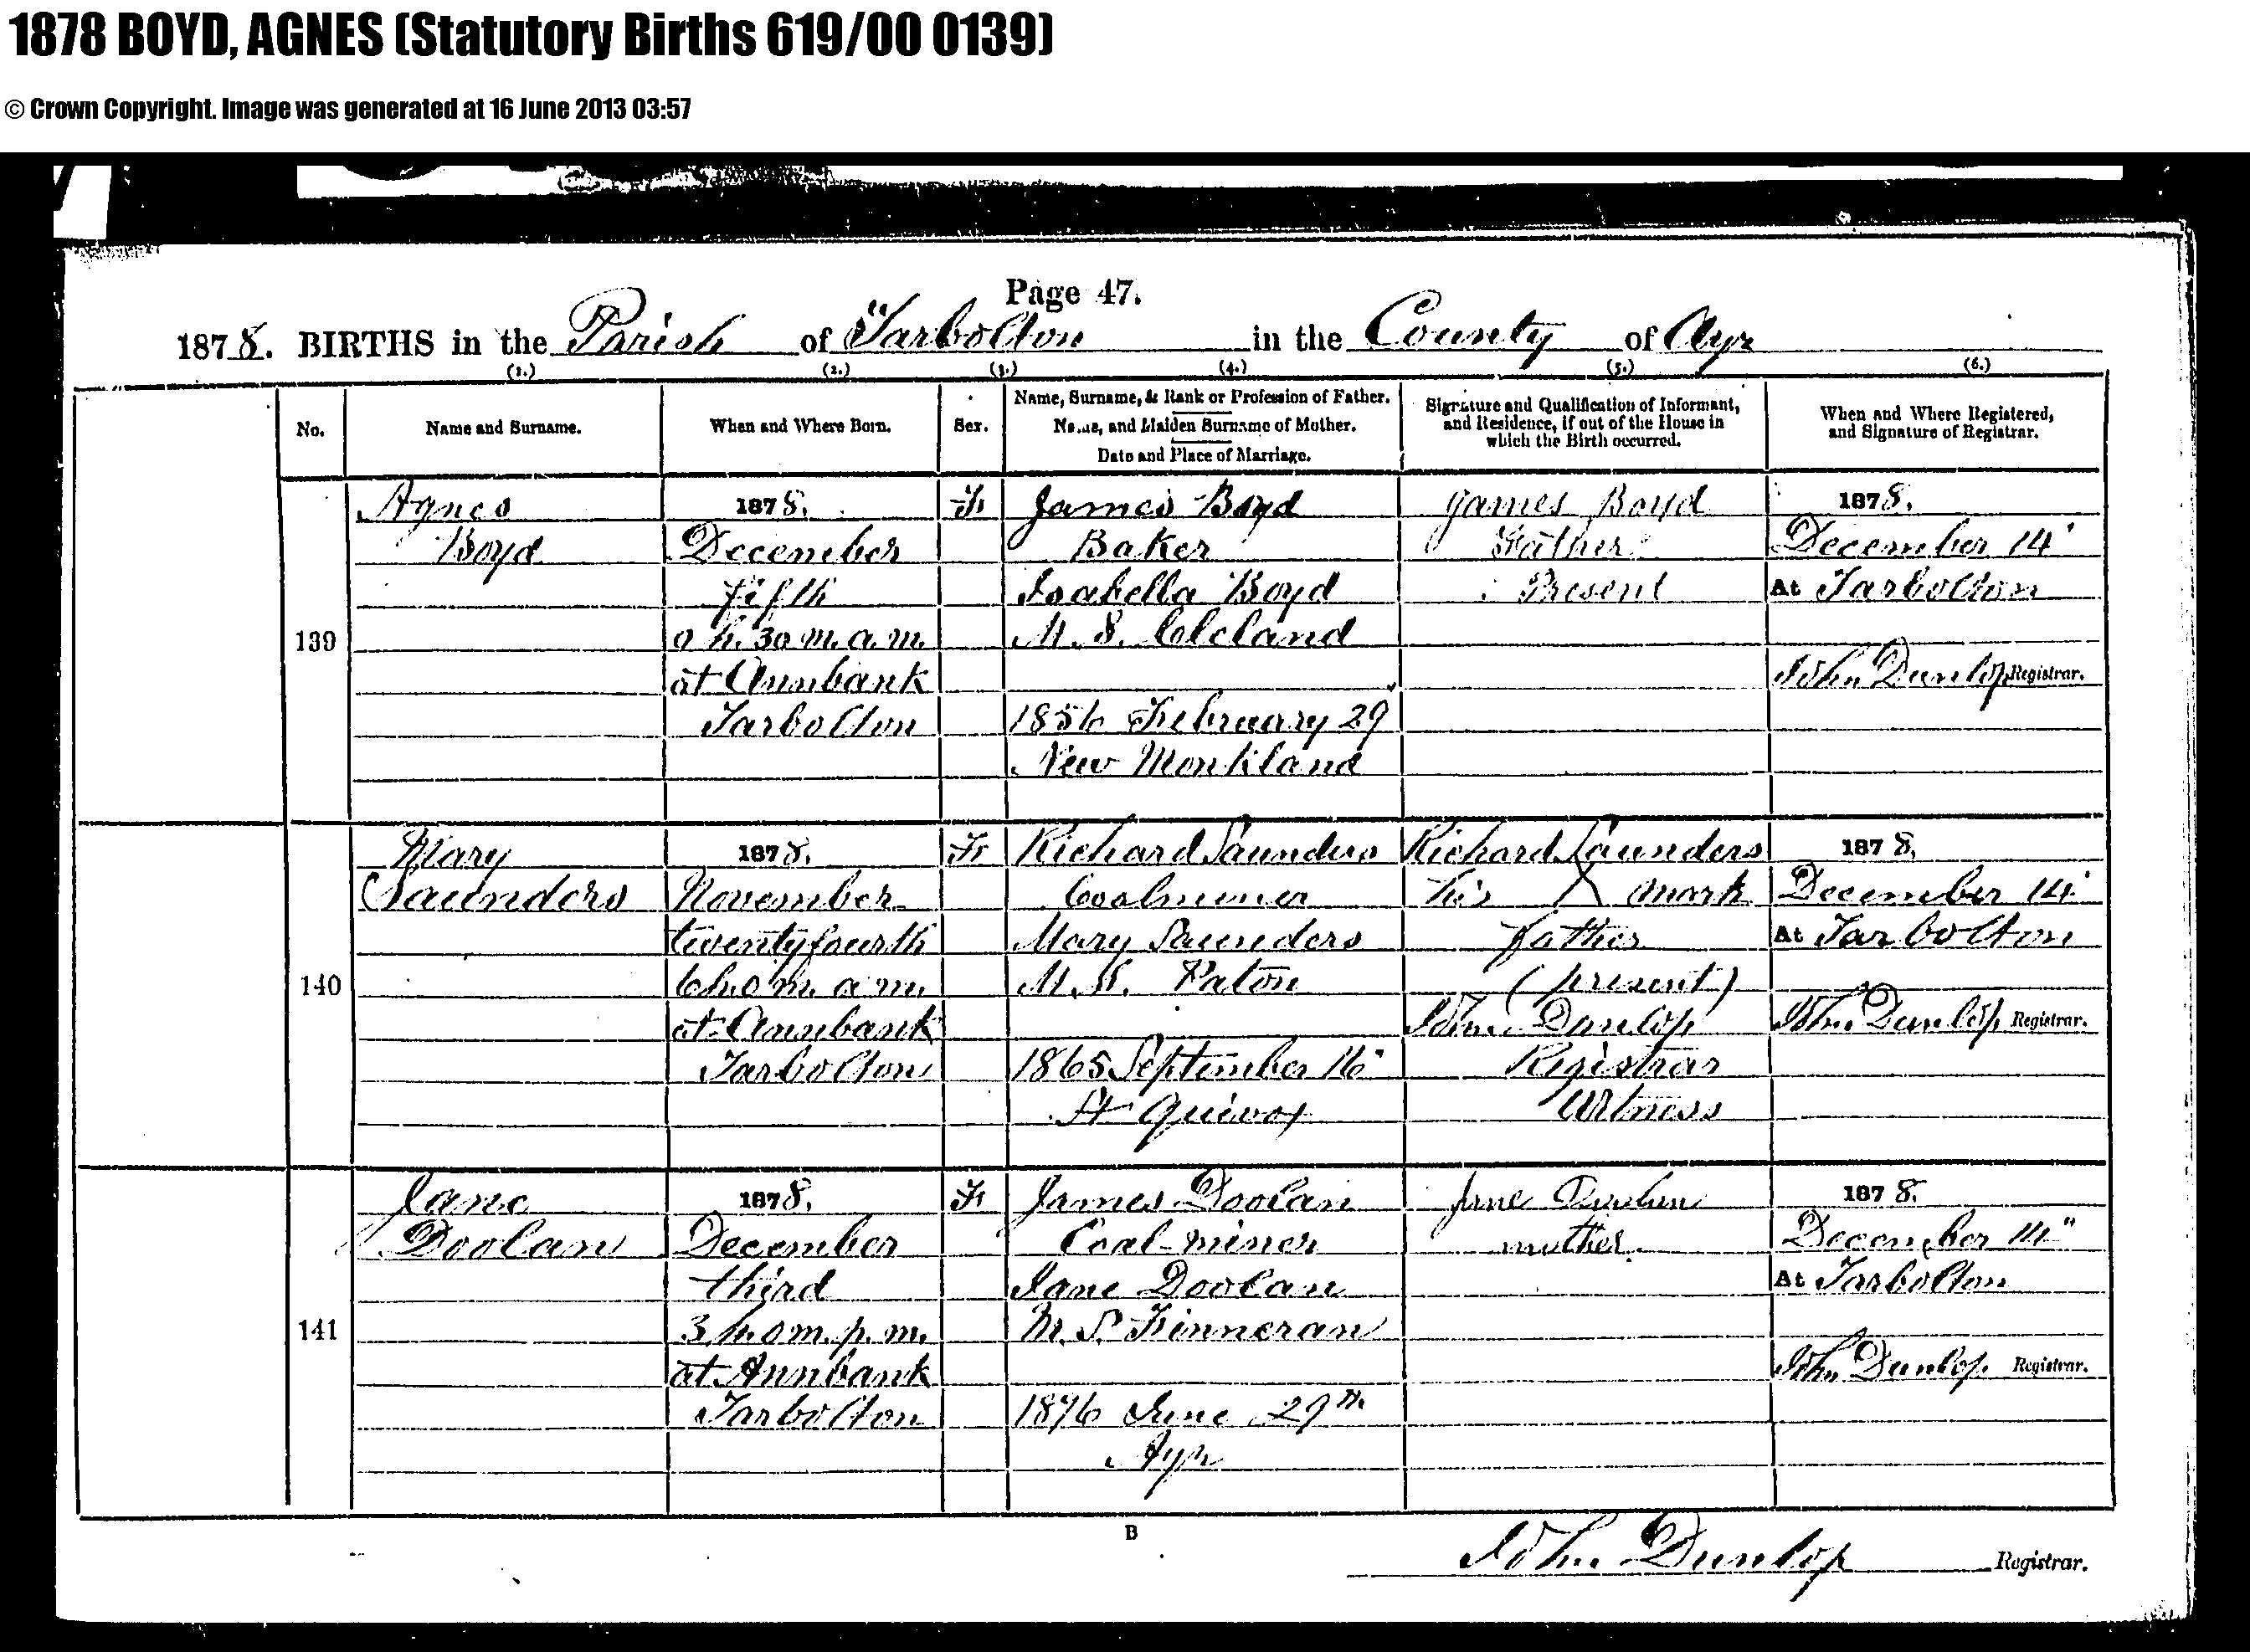 1878 BOYD, AGNES (Statutory Births 619/00 0139)
© Crown Copyright. Image was generated at 16 June 2013 03:57
Page 47.
1878. BIRTHS in the Parish of Tarbolton in the County of Ayr
(1.) (2.) (3.) (4.) (5.) (6.)
No.
Name and Surname.
When and Where Born.
Sex.
Name, Surname, & Rank or Profession of Father.
Name, and Maiden Surname of Mother.
Date and Place of Marriage.
Signature and Qualification of Informant,
and Residence, if out of the House in
which the Birth occurred.
When and Where Registered,
and Signature of Registrar.
139
Agnes
Boyd
1878.
December
fifth
h. 30 m. a.m.
at Annbank
Tarbolton
F
James Boyd
Baker
Isabella Boyd
M.S. Cleland
1856 February 29
New Monkland
James Boyd
Father
Present
1878.
December 14"
At Tarbolton
John Dunlop Registrar.
140
Mary
Saunders
1878.
November
twentyfourth
6 h. 0 m. a.m.
at Annbank
Tarbolton
F
Richard Saunders
Coalminer
Mary Saunders
M.S. Paton
1865 September 16"
St Quivox
Richard Saunders
his X mark
father
(present)
John Dunlop
Registrar
Witness
1878.
December 14"
At Tarbolton
John Dunlop Registrar.
141
Jane
Doolan
1878.
December
third
3 h. 0 m. p.m.
at Annbank
Tarbolton
F
James Doolan
Coal-miner
Jane Doolan
M.S. Finneran
1876 June 29th
Ayr
Jane Doolan
mother.
1878.
December 14"
At Tarbolton
John Dunlop Registrar.
B
John Dunlop Registrar.